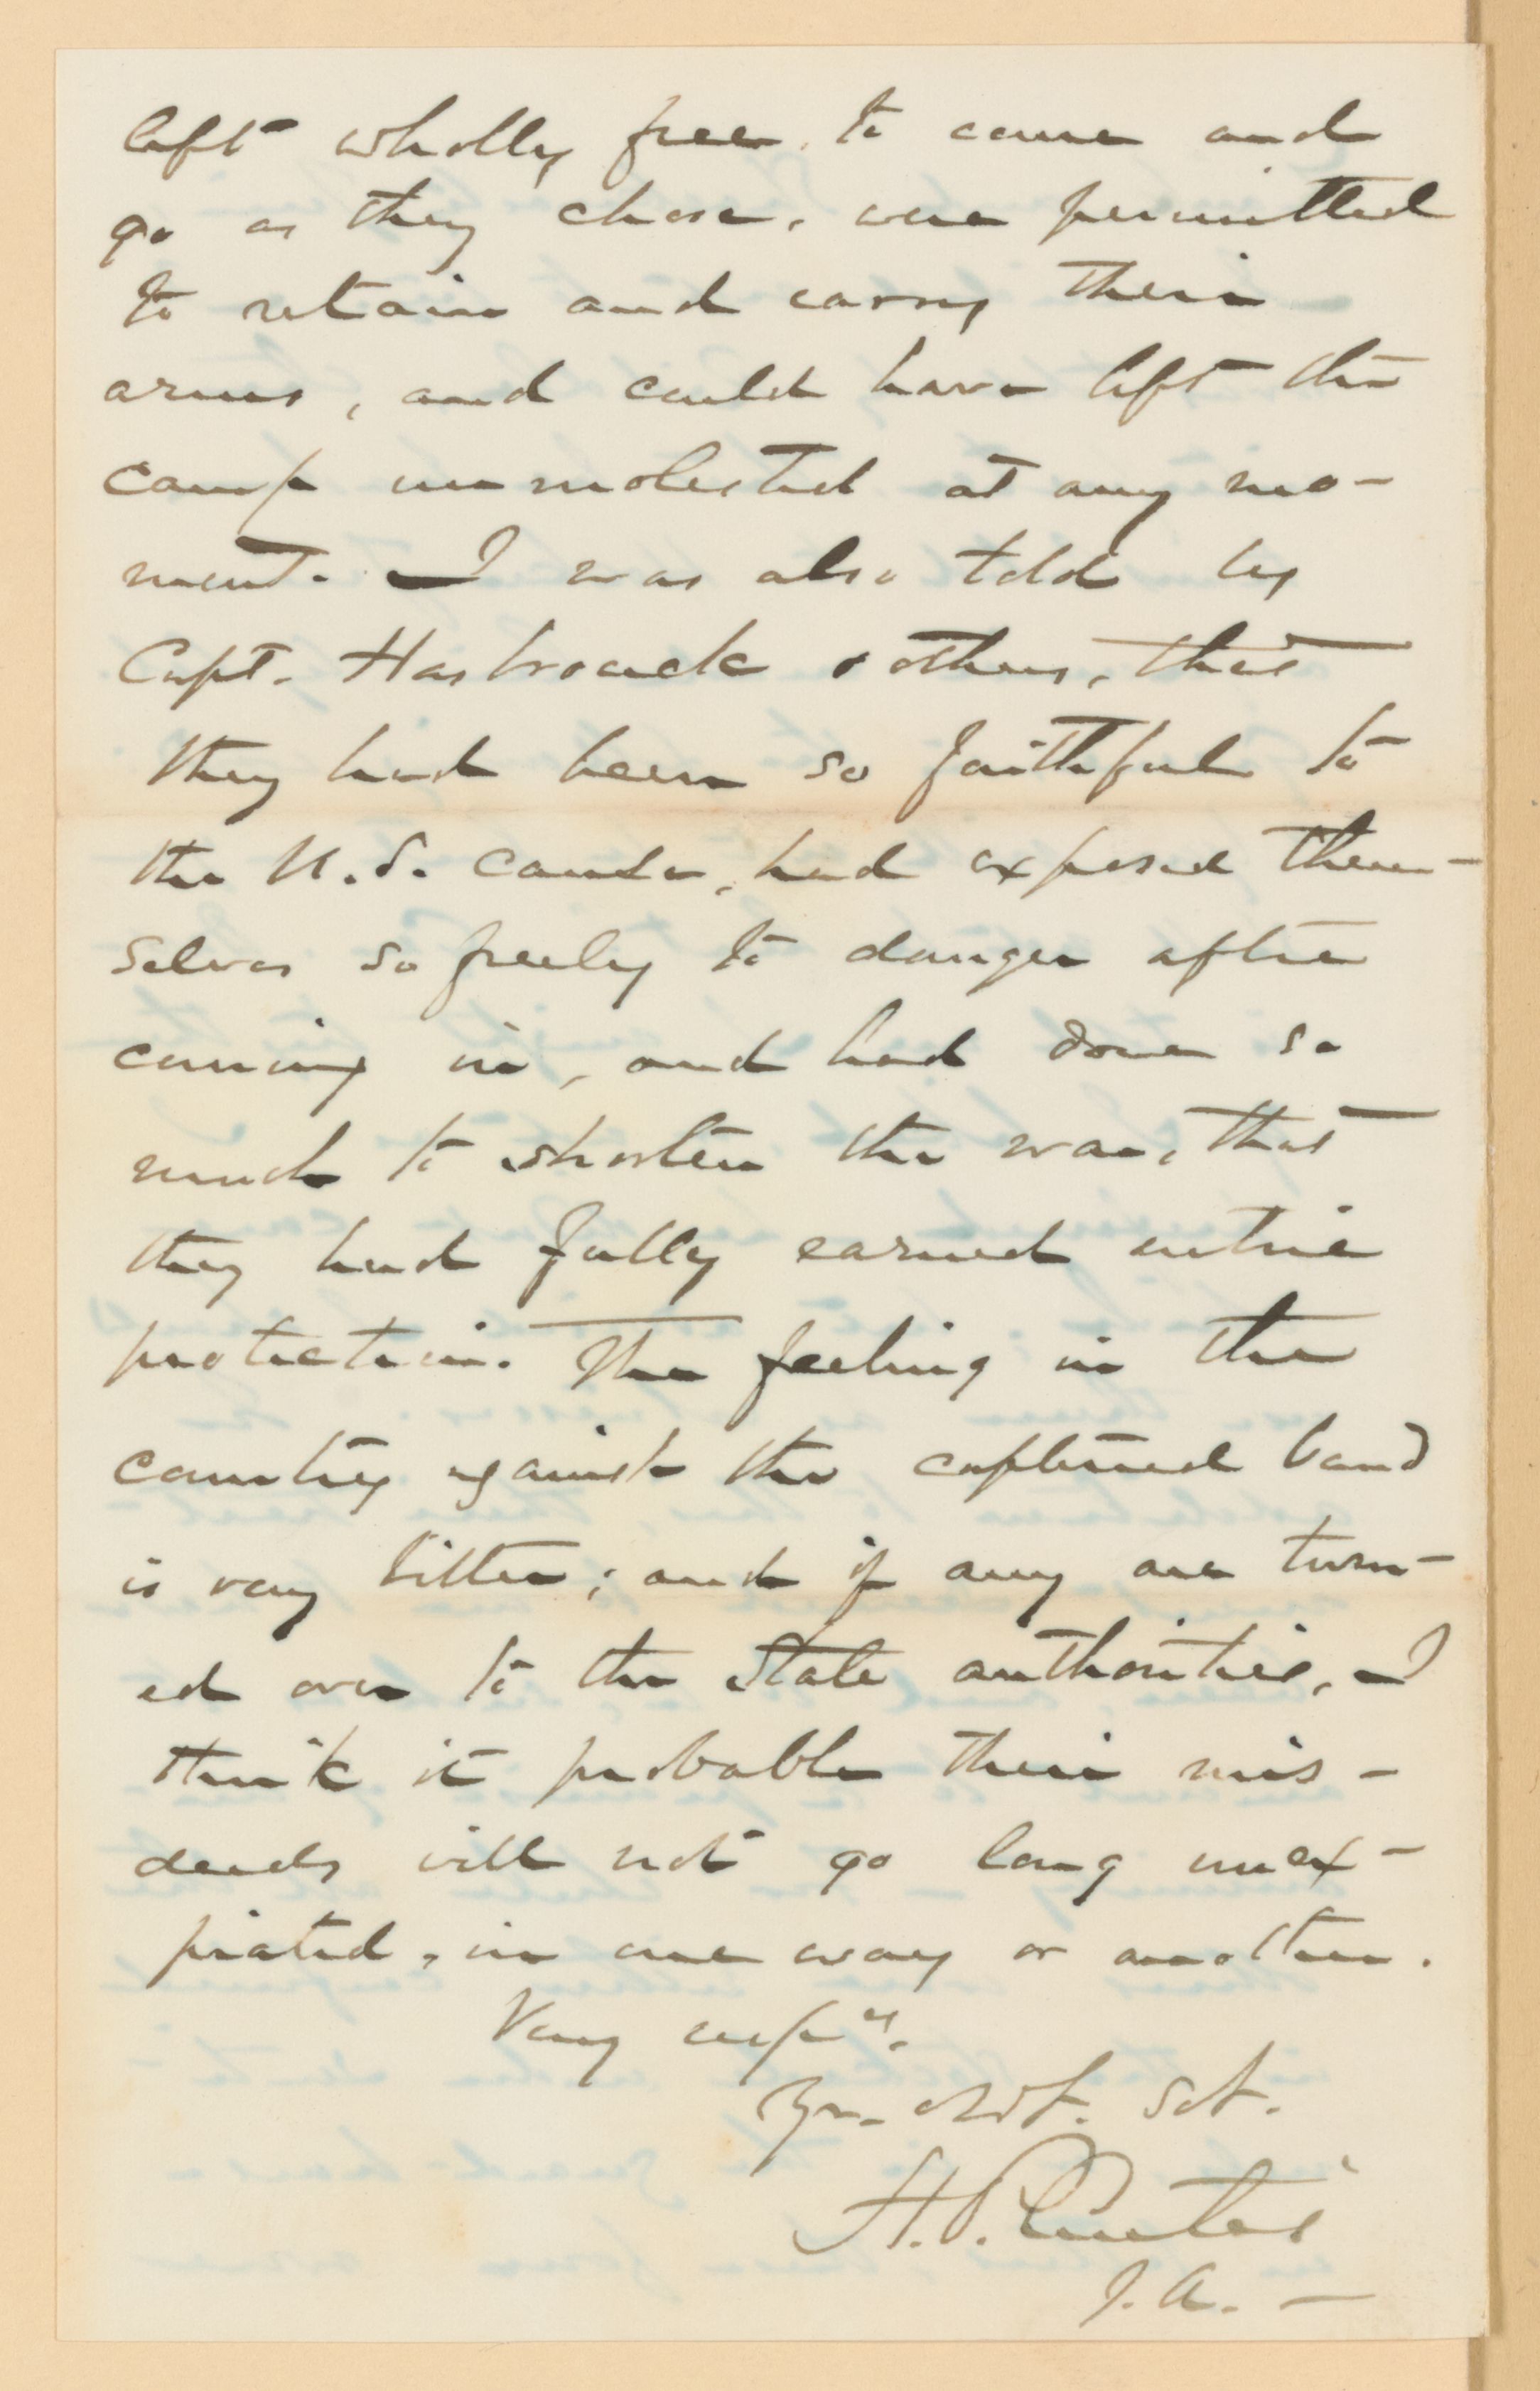 left wholly free, to come and
go as they chose, were permitted
to retain and carry their
arms, and could have left the
camp unmolested at any mo-
ment. I was also told by
Capt. Hasbrouck & others, that
they had been so faithful to
the U.S. cause, had exposed them-
selves so freely to danger after
coming in, and had done so
much to shorten the war, that
they had fully earned entire
protection. The feeling in the
country against the captured band
is very bitter; and if any are turn-
ed over to the State authorities, I
think it probable their mis-
deeds will not go long unex-
piated, in one way or another.
Very resp'y.
Yr. obt. Svt.
H. P. Curtis
J.A. —